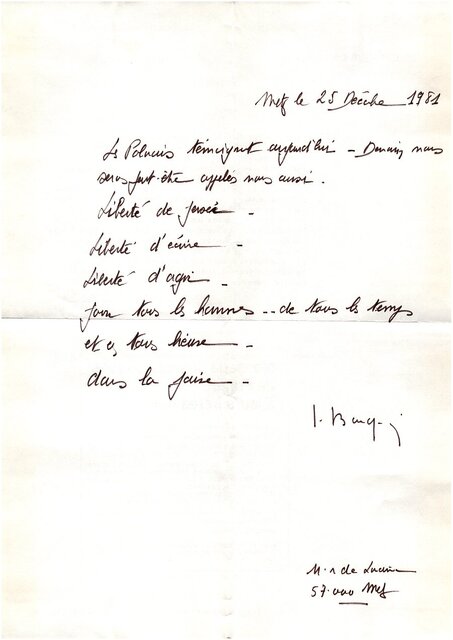 Metz le 25 Décembre 1981
Les Polonais témoignent aujourd'hui - Demain nous
serons peut-être appelés nous aussi.
Liberté de pensée -
Liberté d'écrire -
Liberté d'agir -
pour tous les hommes -- de tous les temps
et à tous -
dans la -
de
57.000 Metz